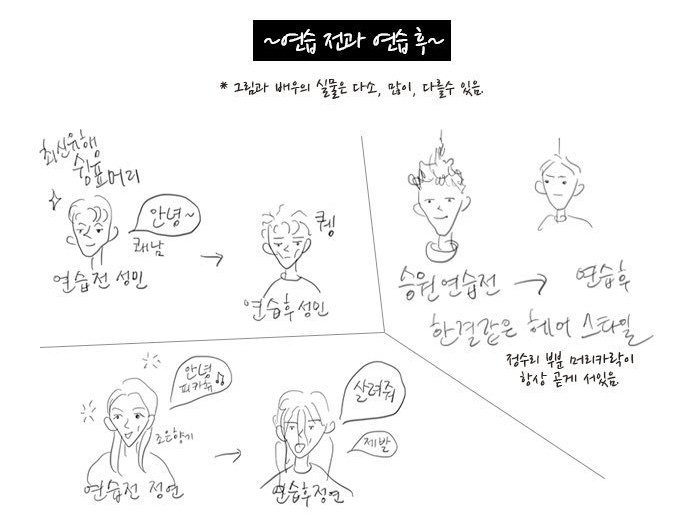 ~연습 전과 연습 후~
* 그림과 배우의 실물은 다소, 많이, 다를수 있음.
최신유행
쉼표머리
안녕~
쾌남
연습전 성민
퀭
연습후 성민
승원 연습전
연습후
한결같은 헤어 스타일
정수리 부분 머리카락이
항상 곧게 서있음.
안녕
피카츄
조은향기
연습전 정연
살려줘
제발
연습후정연